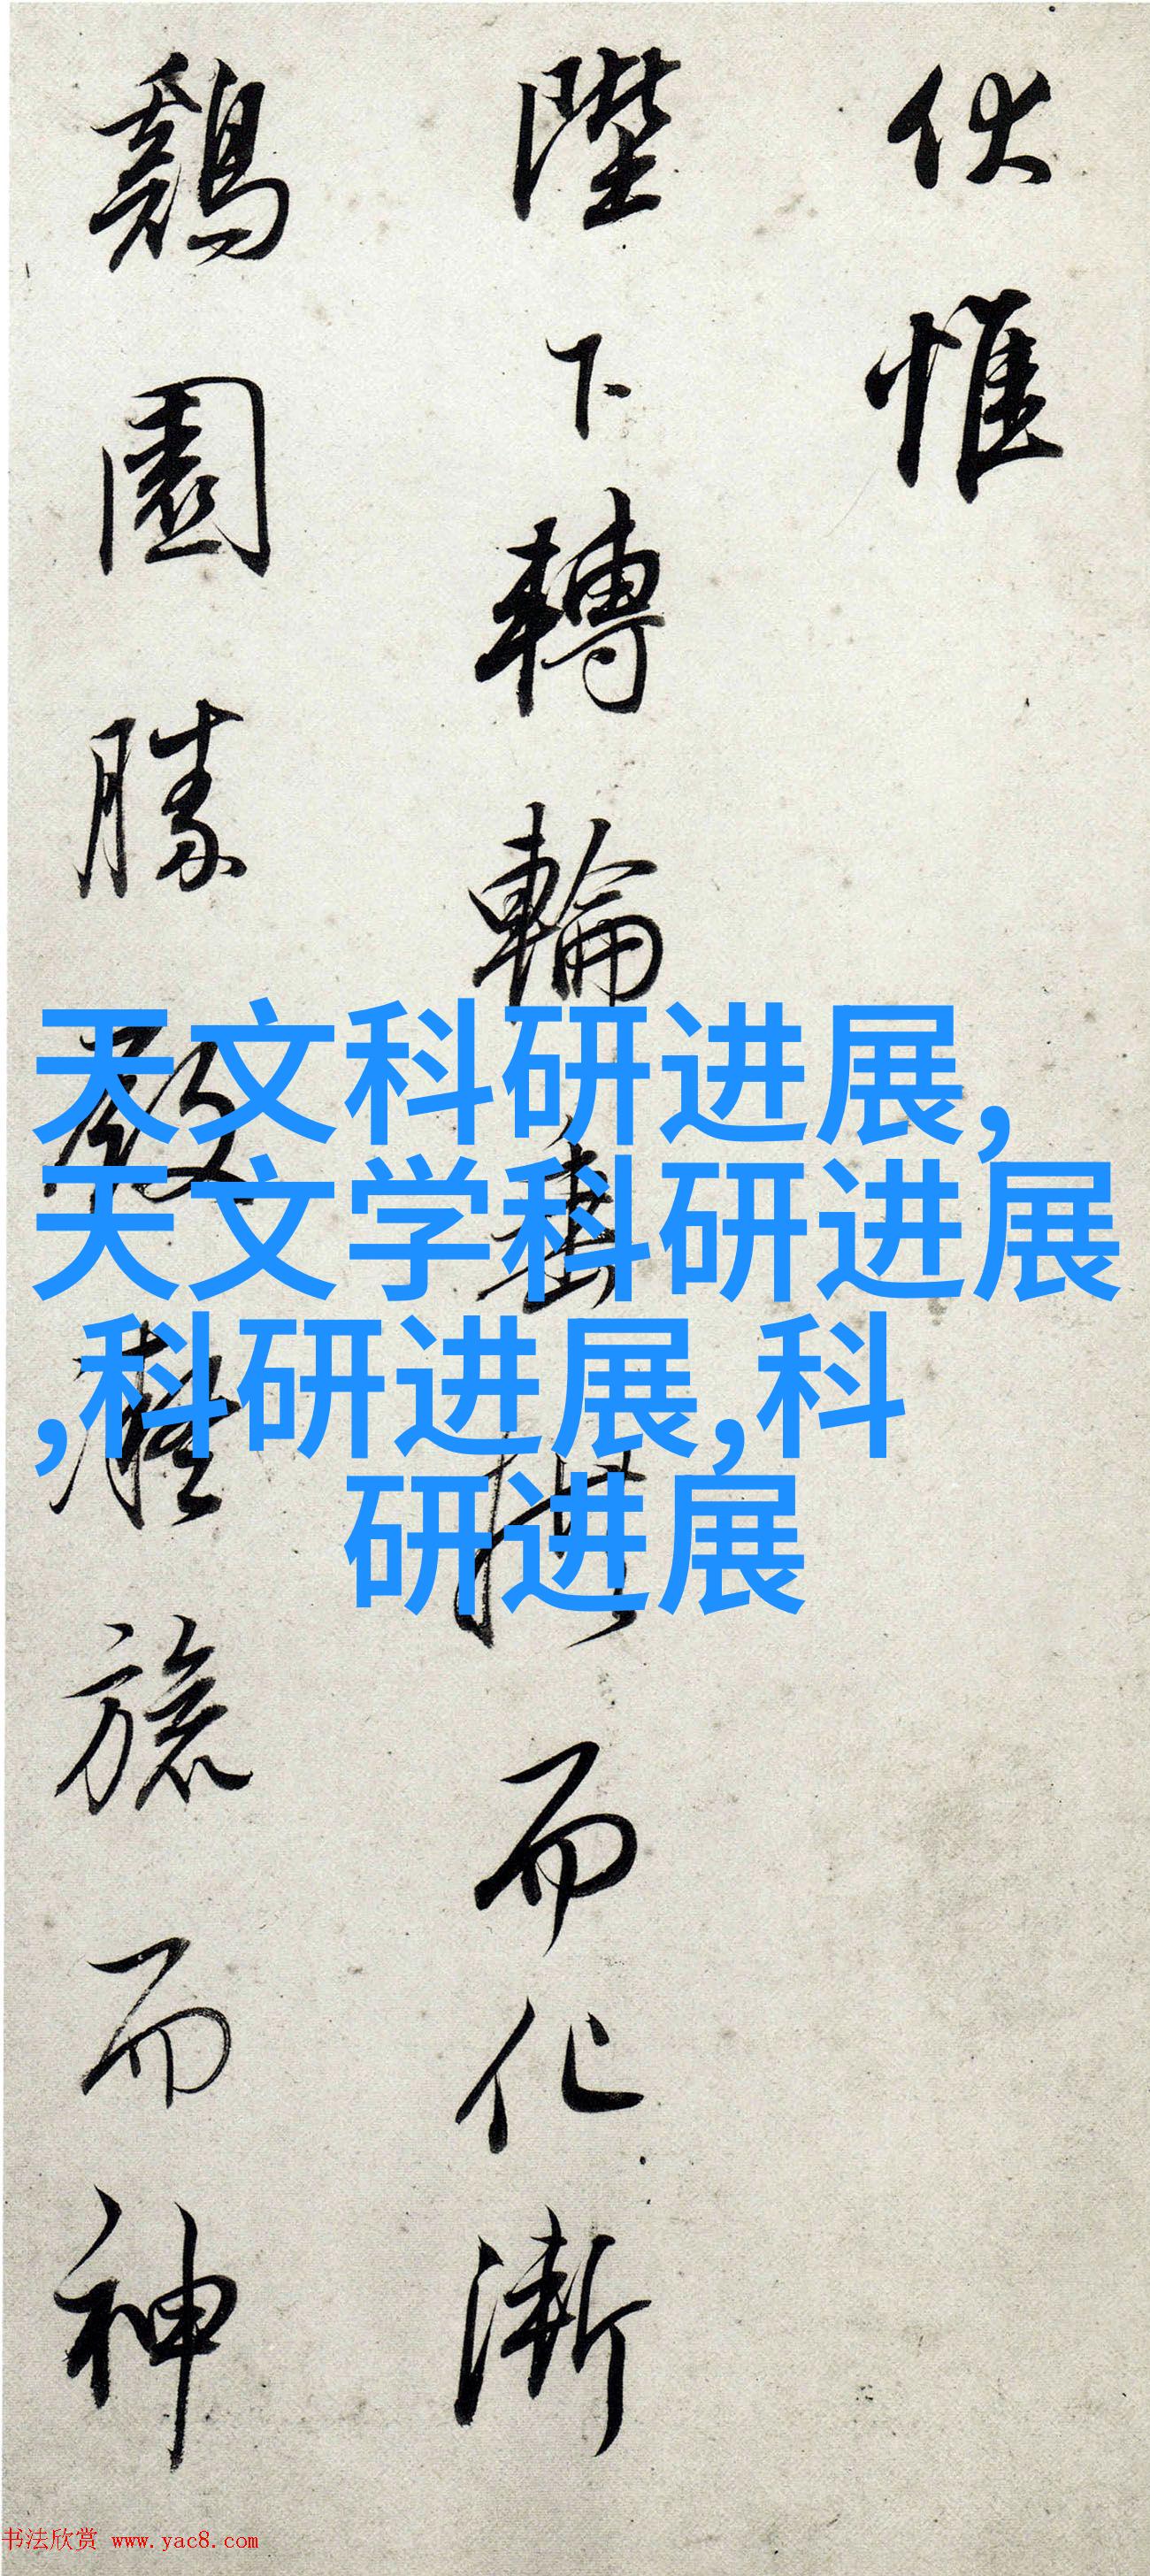 伏惟
陛下轉輪垂拱而化漸
鷄園勝殿凝旒而神
天文科研进展,
天文学科研进展
,科研进展,科
研进展
书法欣赏 www.yac8.com